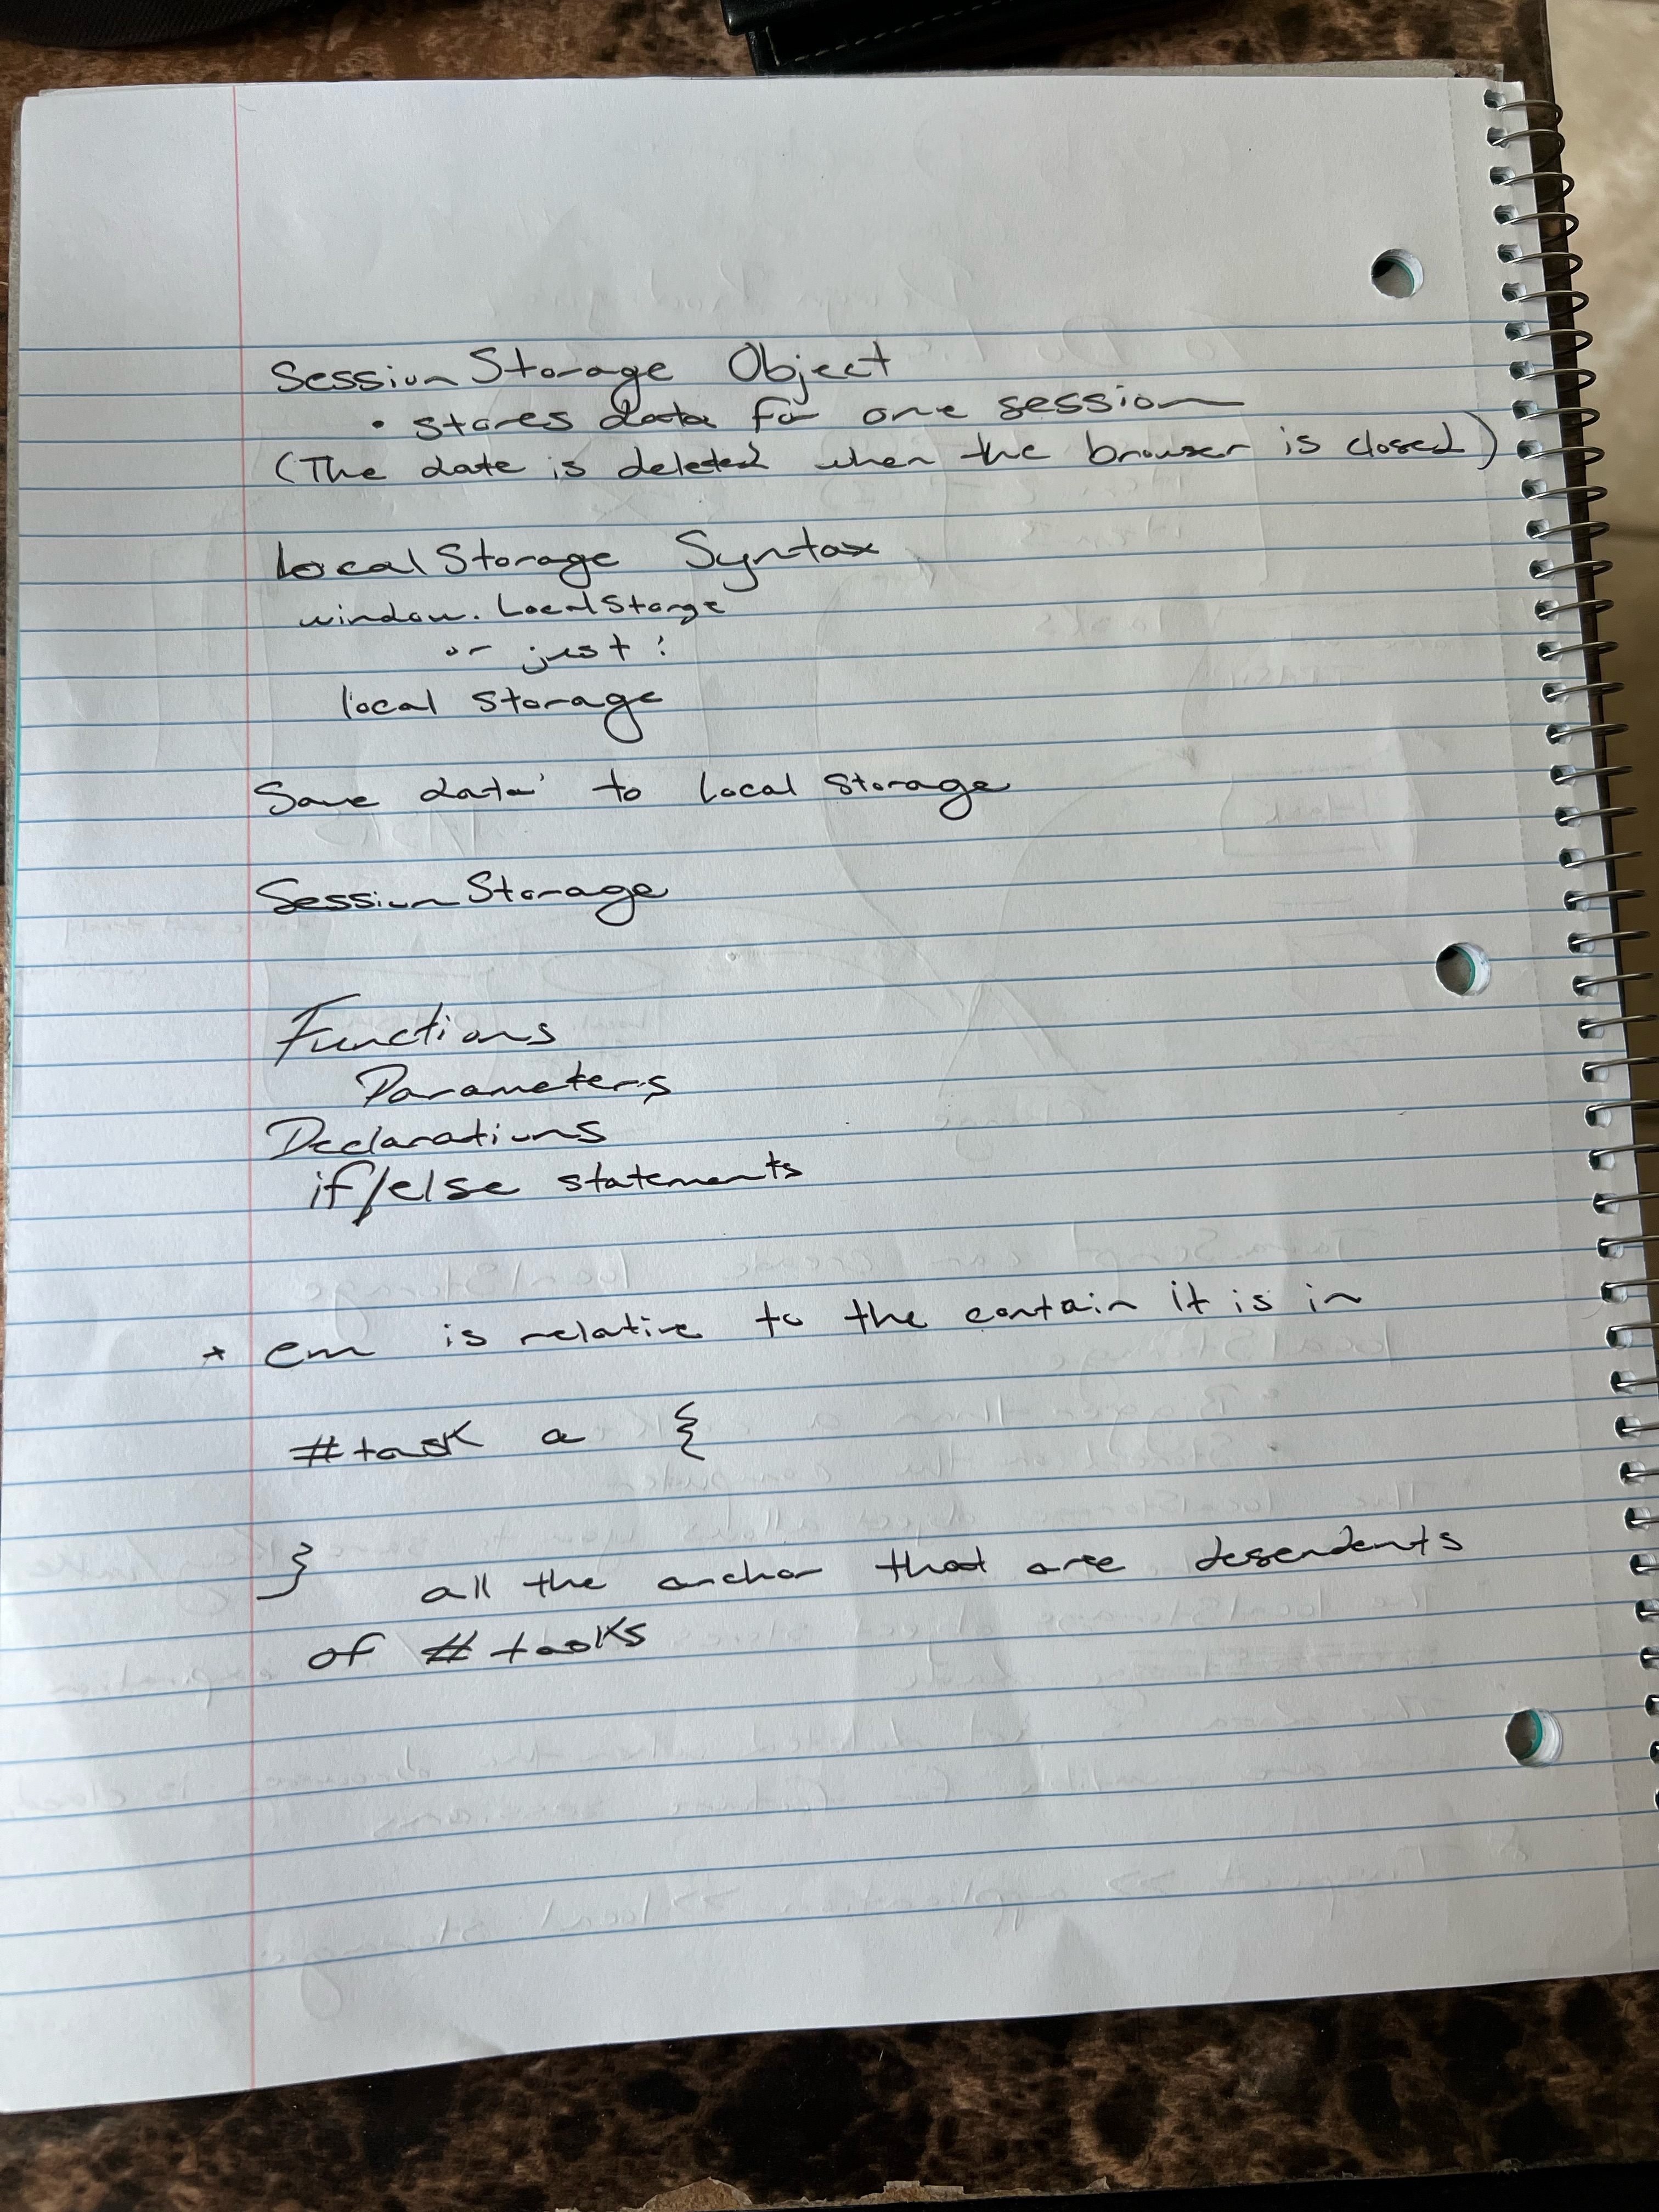 Session Storage Object
• stores data for one session
(The date is deleted when the browser is closed)
Local Storage Syntax
window. Local Storage
or just :
local storage
Save data to Local Storage
Session Storage
Functions
Parameters
Declarations
if/else statements
* em is relative to the contain it is in
#task a {
} all the anchor that are desendents
of # tasks